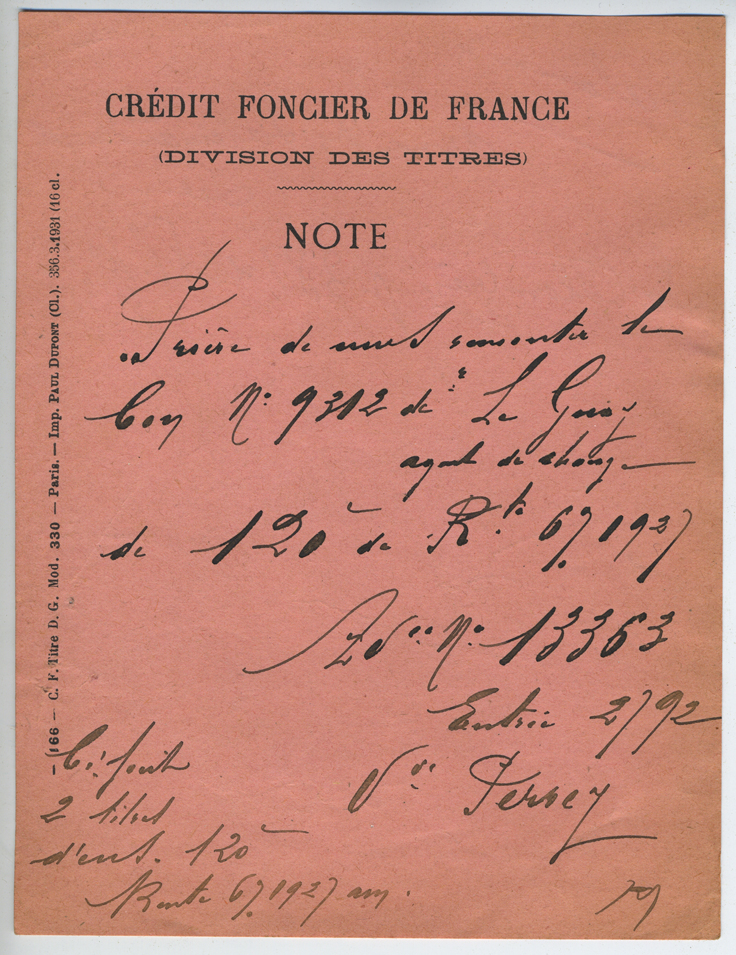 CRÉDIT FONCIER DE FRANCE
(DIVISION DES TITRES)
NOTE
Prière de nous remonter le
Bon N° 9312 de Le Guay
agent de change
de 120 de Rte 6% 1927
N° 13363
Entrée 2792
Vve Persey
Ci-joint
2 titres
d'ens. 120
Rente 6% 1927 am.
— 166 — C. F. Titre D. G. Mod. 330 — Paris. — Imp. PAUL DUPONT (Cl.). 356.3.1931 (16 cl.